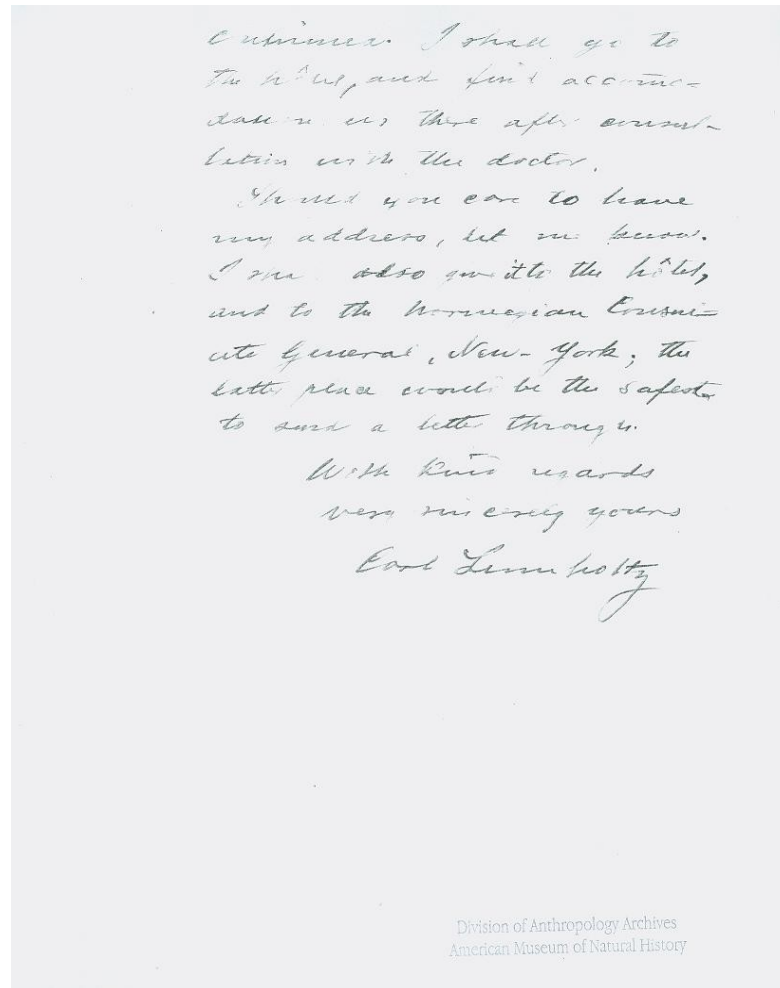 I shall go to
the hôtel, and find accomo-
dation there after consul-
tation with the doctor.
Should you care to have
my address, let me know.
I also to the hôtel,
and to the Norwegian Consul-
ate General, New-York; the
latter place would be the safest
to send a letter through.
With kind regards
very sincerely yours
Carl Lumholtz
Division of Anthropology Archives
American Museum of Natural History